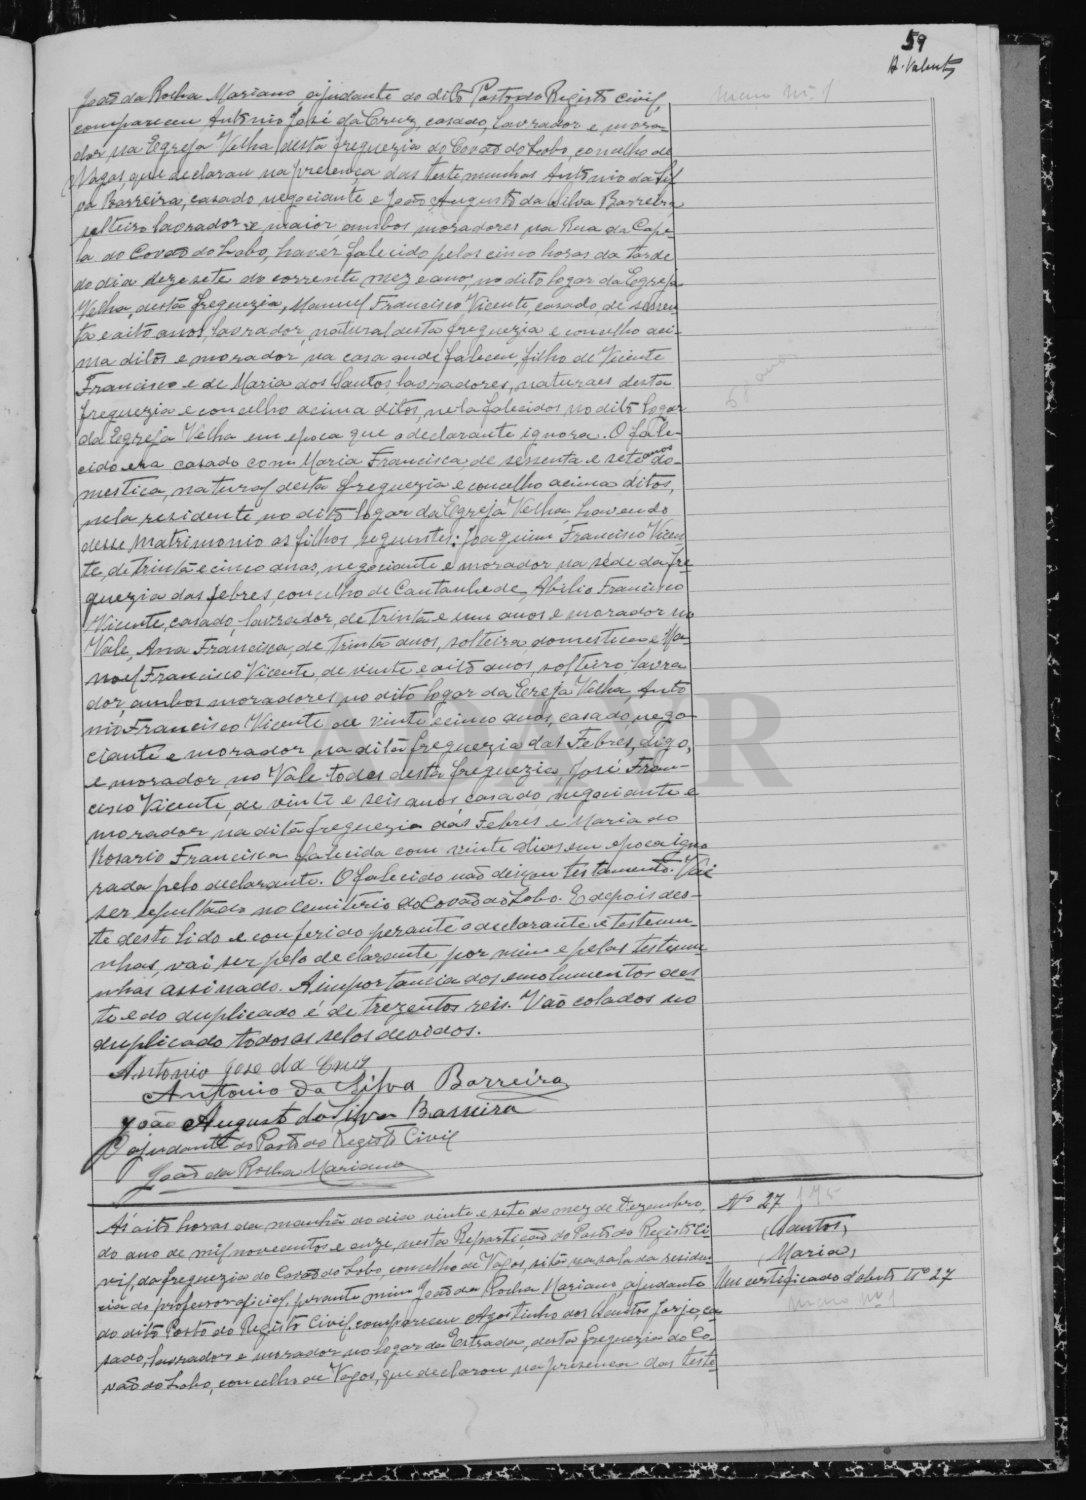 59
A. Valente
João da Rocha Mariano ajudante do dito Posto do Registo Civil,
compareceu António José da Cruz, casado, lavrador e mora-
dor na Egreja Velha desta freguezia do Covão do Lobo, concelho de
Vagos, que declarou na presença das testemunhas António da Sil
va Barreira, casado negociante e João Augusto da Silva Barreira
solteiro lavrador e maior ambos moradores na Rua da Cape-
la do Covão do Lobo, haver falecido pelas cinco horas da tarde
do dia dezesete do corrente mez e ano, no dito logar da Egreja
Velha, desta freguezia, Manuel Francisco Vicente, casado, de sessen
ta e oito anos, lavrador, natural desta freguezia e concelho aci-
ma ditos e morador na casa onde faleceu, filho de Vicente
Francisco e de Maria dos Santos, lavradores, naturaes desta
freguezia e concelho acima ditos, nela falecidos no dito logar
da Egreja Velha em epoca que o declarante ignora. O fale-
cido era casado com Maria Francisca de sessenta e sete anos do-
mestica, natural desta freguezia e concelho acima ditos,
nela residente no dito logar da Egreja Velha, havendo
desse matrimonio os filhos seguintes: Joaquim Francisco Vicen
te, de trinta e cinco anos, negociante e morador na séde da fre
guezia das febres, concelho de Cantanhede, Abilio Francisco
Vicente, casado, lavrador, de trinta e um anos e morador no
Vale, Ana Francisca, de trinta anos, solteira domestica e Ma-
noel Francisco Vicente, de vinte e oito anos, solteiro, lavra
dor, ambos moradores no dito logar da Egreja Velha, Anto
nio Francisco Vicente de vinte e cinco anos, casado, nego-
ciante e morador na dita freguezia das Febres, digo,
e morador no Vale todos desta freguezia, José Fran-
cisco Vicente, de vinte e seis anos, casado, negociante e
morador na dita freguezia das Febres e Maria do
Rosario Francisca falecida com vinte dias em epoca igno
rada pelo declarante. O falecido não deixou testamento. Vai
ser sepultado no cemiterio do Covão do Lobo. E depois des-
te deste lido e conferido perante o declarante e testemu-
nhas, vai ser pelo declarante, por mim e pelas testemu
nhas assinado. A importancia dos emolumentos des-
te e do duplicado é de trezentos reis. Vão colados no
duplicado todos os selos devidos.
Antonio Jose da Cruz
Antonio da Silva Barreira
João Augusto da Silva Barreira
O ajudante do Posto do Registo Civil
João da Rocha Mariano
Nº 27
Santos,
Maria,
Um certificado d'obito Nº 27
Ás oito horas da manhã do dia vinte e sete do mez de Dezembro,
do ano de mil novecentos e onze, nesta Repartição do Posto do Registo Ci
vil, da freguezia do Covão do Lobo, concelho de Vagos, sita na sala da residen
cia do professor oficial, perante mim João da Rocha Mariano, ajudante
do dito Posto do Registo Civil compareceu Agostinho dos Santos Jorje, ca
sado, lavrador e morador no logar da Estrada, desta freguezia do Co-
vão do Lobo, concelho de Vagos, que declarou na presença das teste
ADAVR